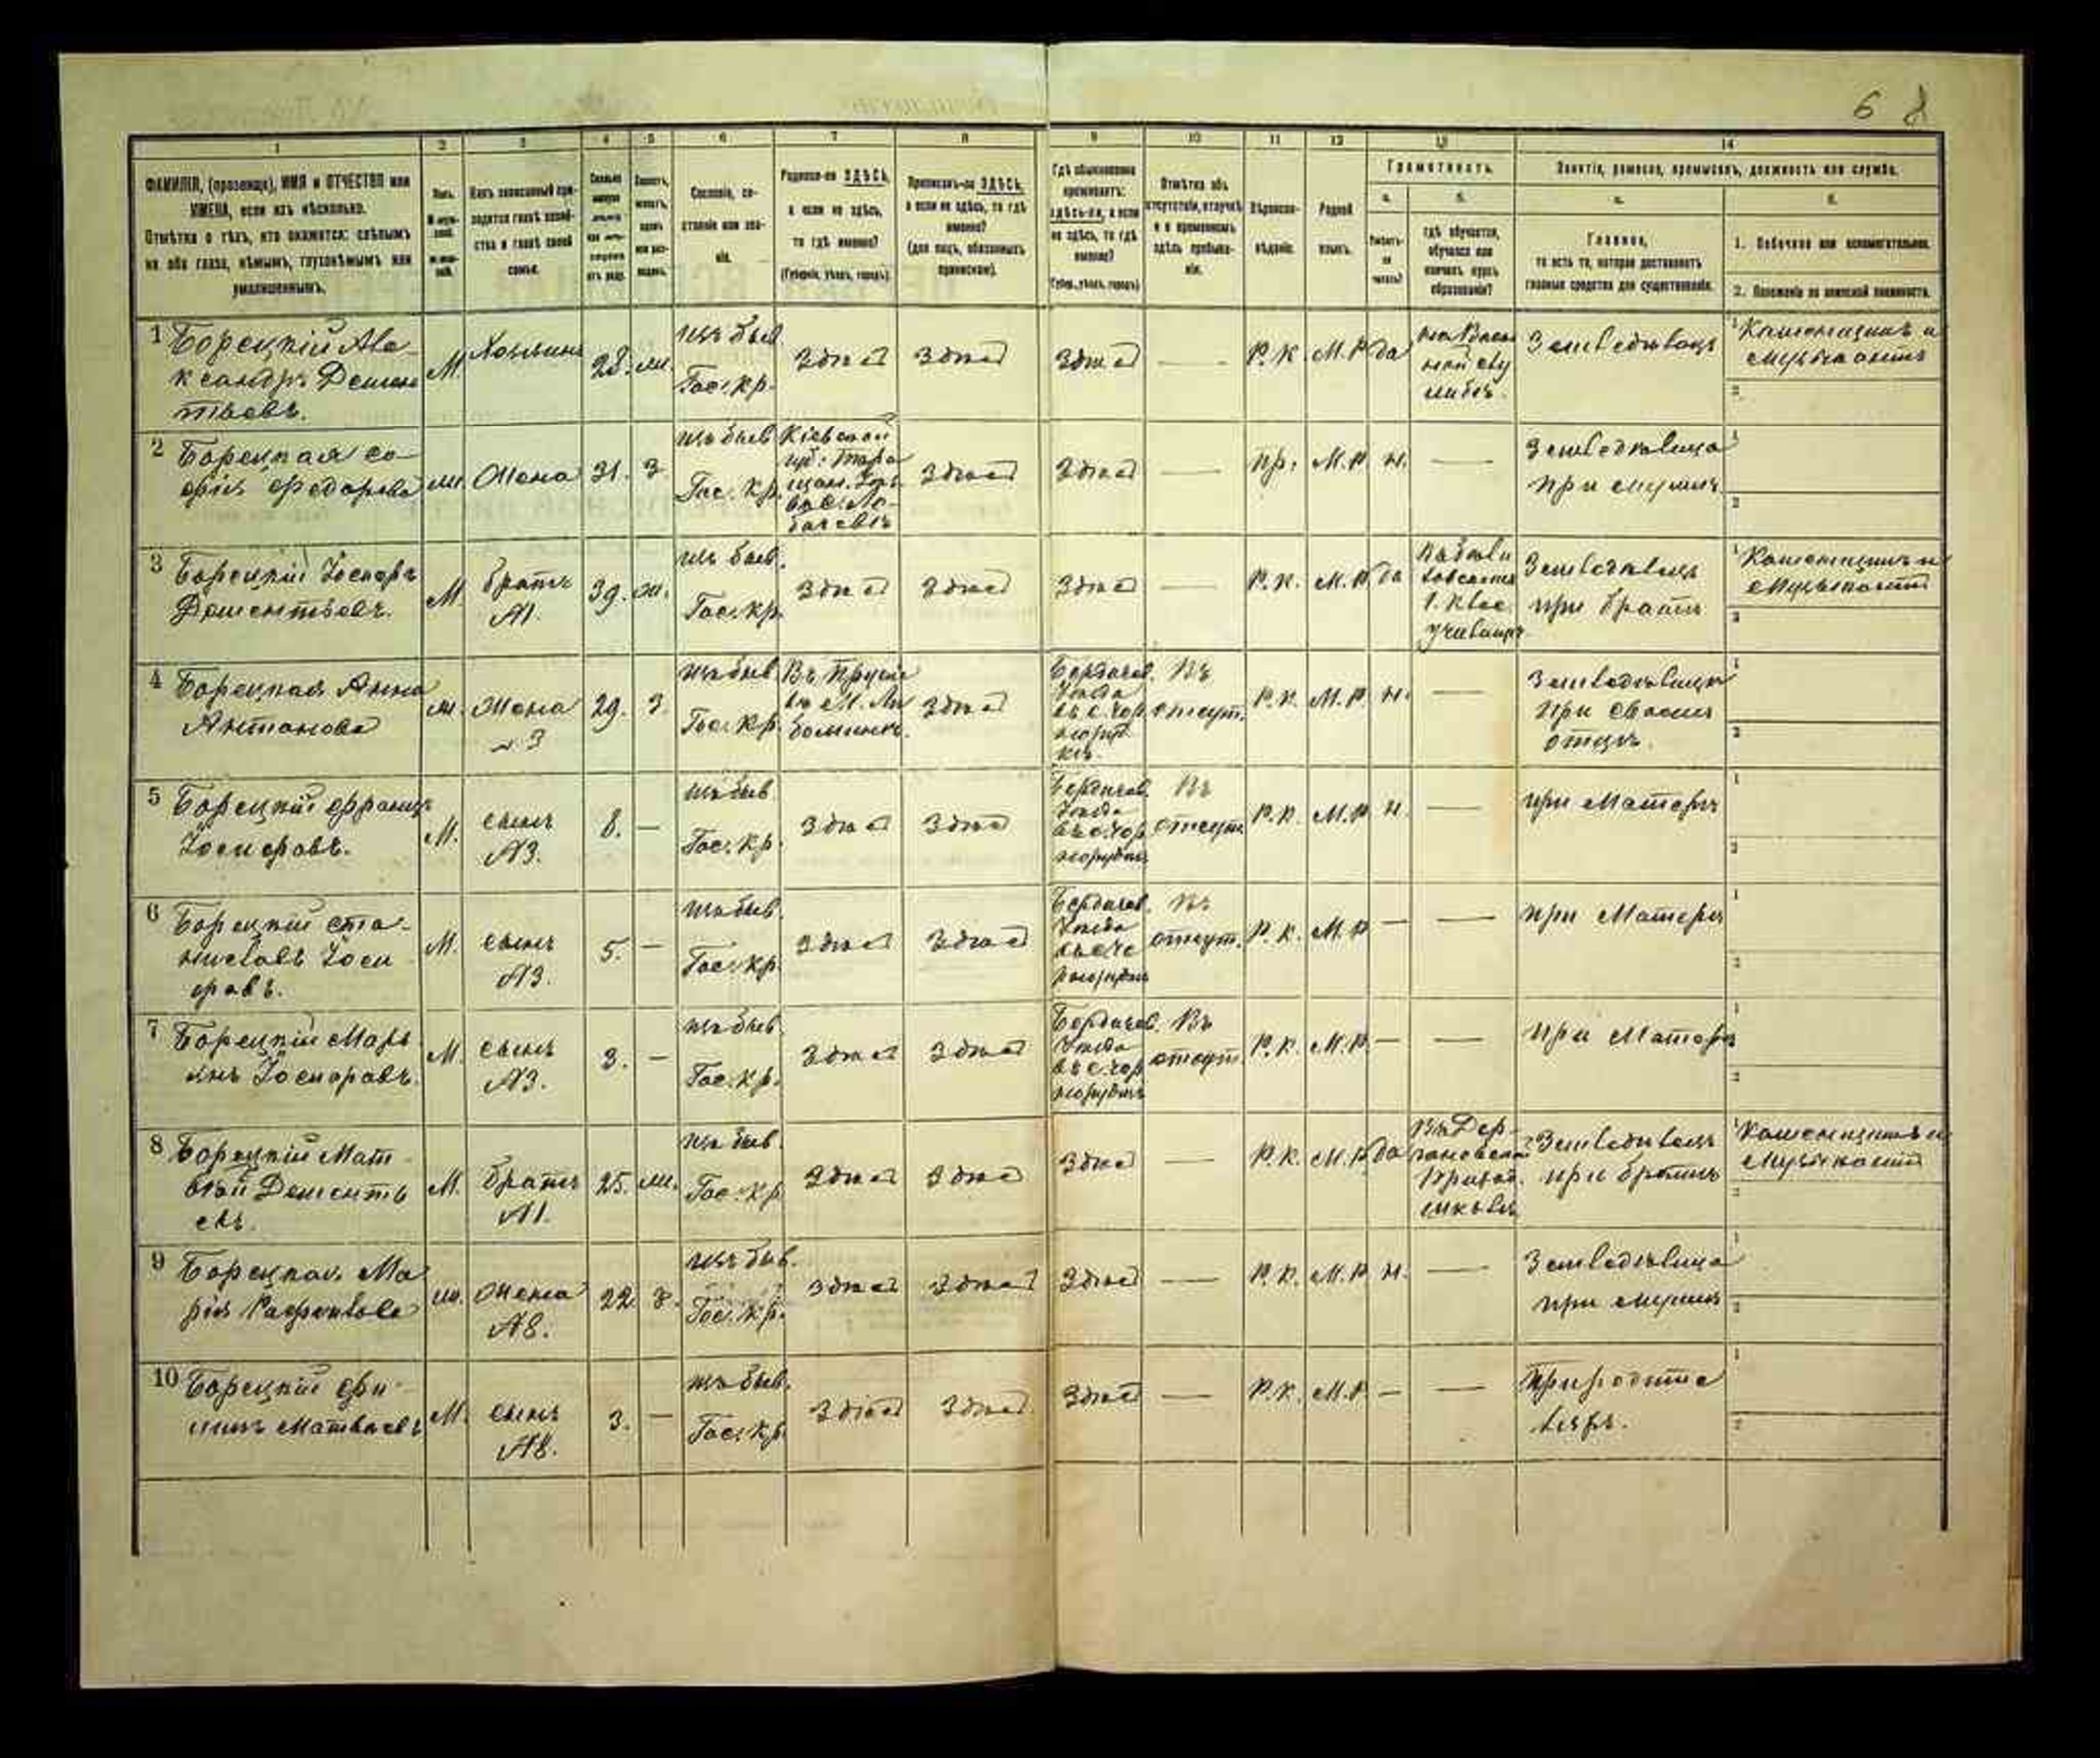 6 8
1
2
3
4
5
6
7
8
9
10
11
12
13
14
ФАМИЛІЯ, (прозвище), ИМЯ и ОТЧЕСТВО или
ИМЕНА, если ихъ нѣсколько.
Отмѣтка о тѣхъ, кто окажется: слѣпымъ
на оба глаза, нѣмымъ, глухонѣмымъ или
умалишеннымъ.
Полъ.
Какъ записанный при-
ходится главѣ хозяй-
ства и главѣ своей
семьи.
Сословіе, со-
стояніе или зва-
ніе.
Родился-ли ЗДѢСЬ,
а если не здѣсь,
то гдѣ именно?
(Губернія, уѣздъ, городъ).
Приписанъ-ли ЗДѢСЬ,
а если не здѣсь, то гдѣ
именно?
(для лицъ, обязанныхъ
припискою).
Гдѣ обыкновенно
проживаетъ:
здѣсь-ли, а если
не здѣсь, то гдѣ
именно?
(Губер., уѣздъ, городъ)
Отмѣтка объ
отсутствіи, отлучкѣ
и о временномъ
здѣсь пребыва-
ніи.
Вѣроиспо-
вѣданіе.
Родной
языкъ.
Грамотность.
а.
б.
Умѣетъ-
ли
читать?
гдѣ обучается,
обучался или
кончилъ курсъ
образованія?
Занятіе, ремесло, промыселъ, должность или служба.
а.
б.
Главное,
то есть то, которое доставляетъ
главныя средства для существованія.
1. Побочное или вспомогательное.
2. Положеніе по воинской повинности.
1 Борецкій Але-
ксандръ Демен
тьевъ.
М. Хозяинъ 28. ж.
изъ быв
Гос. кр.
Здѣсь Здѣсь Здѣсь — Р.К. М.Р. да
Земледѣлецъ
Каменщикъ и
музыкантъ
2 Борецкая Со-
фія Федорова
ж. Жена 31. З.
изъ быв
Гос. кр.
Кіевской
губ. Тара
щан.
Здѣсь Здѣсь — пр. М.Р. н. —
Земледѣлица
при мужѣ
3 Борецкій Іосифъ
Дементьевъ.
М. братъ
№1.
39. ж.
изъ быв.
Гос. кр.
Здѣсь Здѣсь Здѣсь — Р.К. М.Р. да
1. клас.
училищѣ
Земледѣлецъ
при братѣ
Каменщикъ и
музыкантъ
4 Борецкая Анна
Антонова
ж. Жена
№3
29. З.
изъ быв
Гос. кр.
Въ Прусіи
въ М.
Здѣсь
Бердичев.
Уѣзда
въ с.
Въ
отсут.
Р.К. М.Р. н. —
Земледѣлица
при своемъ
отцѣ.
5 Борецкій Францъ
Іосифовъ.
М. сынъ
№3.
8. —
изъ быв
Гос. кр.
Здѣсь Здѣсь
Бердичев.
Уѣзда
Въ
отсут.
Р.К. М.Р. н. —
при Матери
6 Борецкій Ста-
ниславъ Іоси
фовъ.
М. сынъ
№3.
5. —
изъ быв.
Гос. кр.
Здѣсь Здѣсь
Бердичев.
Уѣзда
Въ
отсут.
Р.К. М.Р. — —
при Матери
7 Борецкій Марь
янъ Іосифовъ.
М. сынъ
№3.
3. —
изъ быв
Гос. кр.
Здѣсь Здѣсь
Бердичев.
Уѣзда
Въ
отсут.
Р.К. М.Р. — —
при Матери
8 Борецкій Мат-
вѣй Дементь
евъ.
М. братъ
№1.
25. ж.
изъ быв.
Гос. кр
Здѣсь Здѣсь Здѣсь — Р.К. М.Р. да
Земледѣлецъ
при братѣ
Каменщикъ и
музыкантъ
9 Борецкая Ма
рія
ж. Жена
№8.
22. З.
изъ быв.
Гос. кр.
Здѣсь Здѣсь Здѣсь — Р.К. М.Р. н. —
Земледѣлица
при мужѣ
10 Борецкій Фи-
липъ Матвѣевъ
М. сынъ
№8.
3. —
изъ быв.
Гос. кр.
Здѣсь Здѣсь Здѣсь — Р.К. М.Р. — —
При родите
ляхъ.